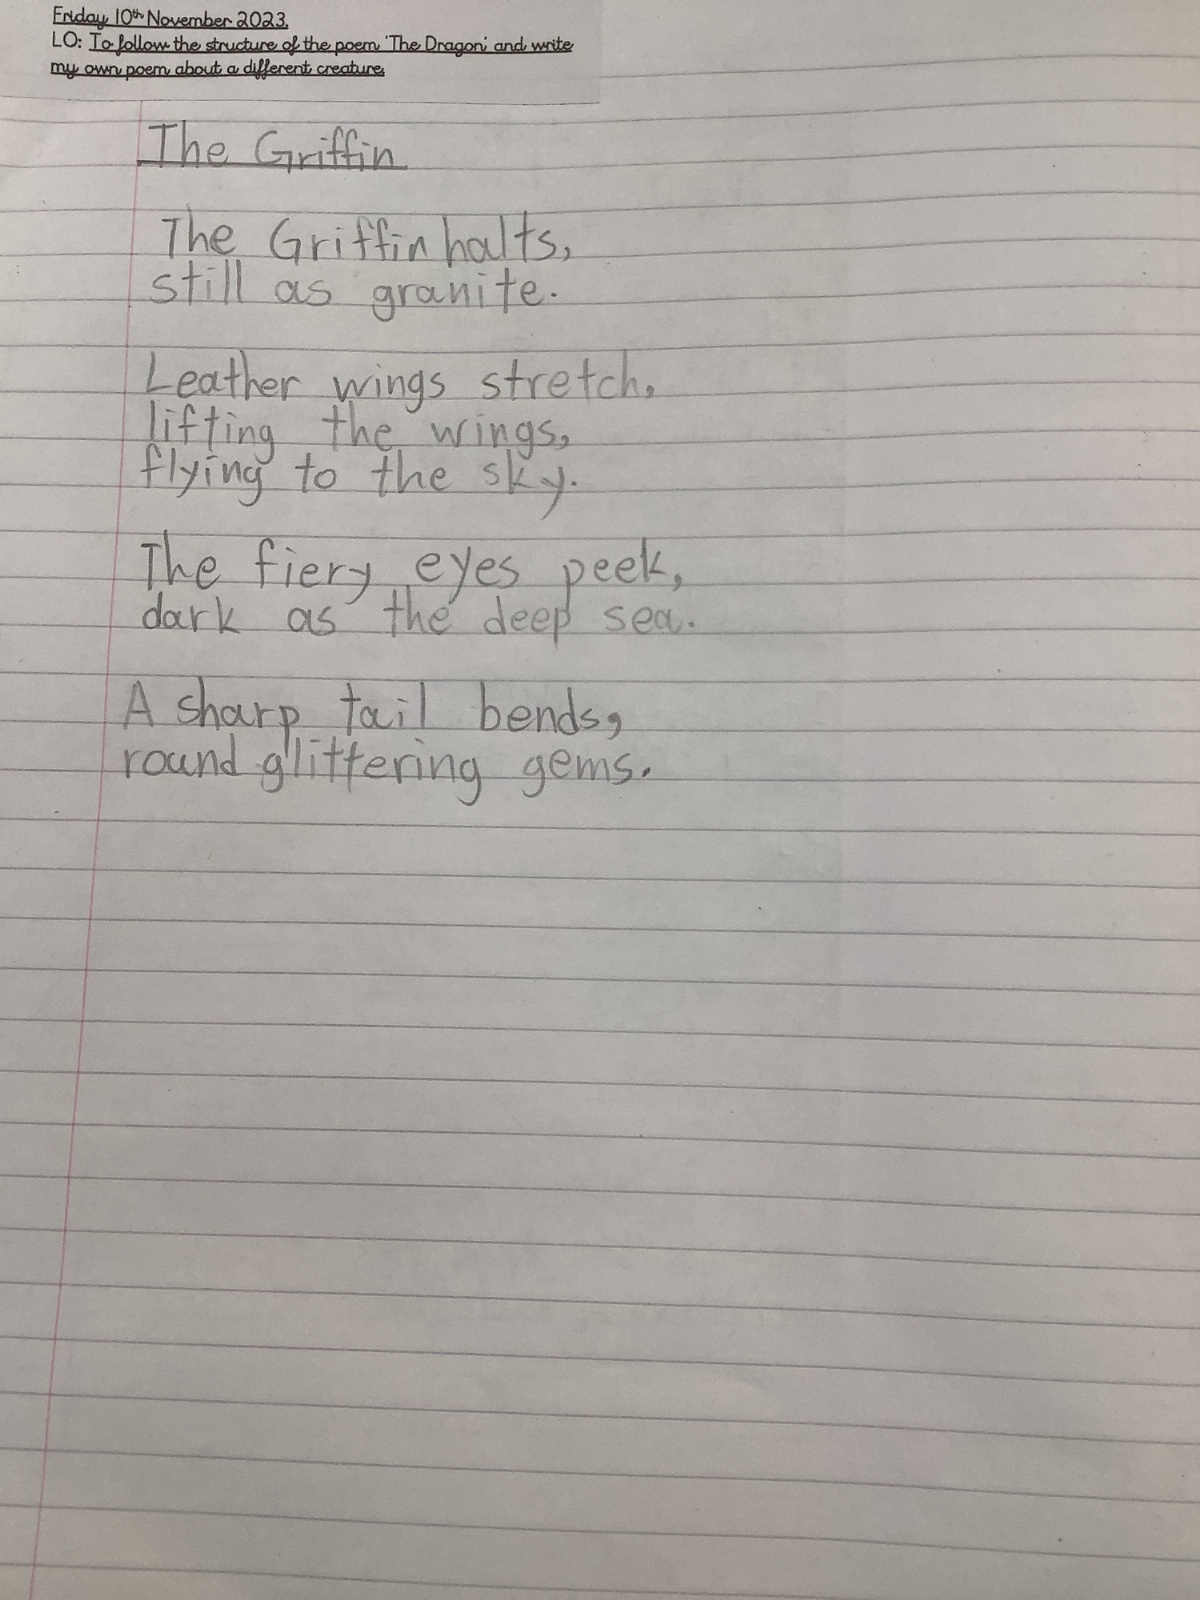 Friday 10th November 2023.
LO: To follow the structure of the poem 'The Dragon' and write
my own poem about a different creature.
The Griffin
The Griffin halts,
still as granite.
Leather wings stretch,
lifting the wings,
flying to the sky.
The fiery eyes peek,
dark as the deep sea.
A sharp tail bends,
round glittering gems.